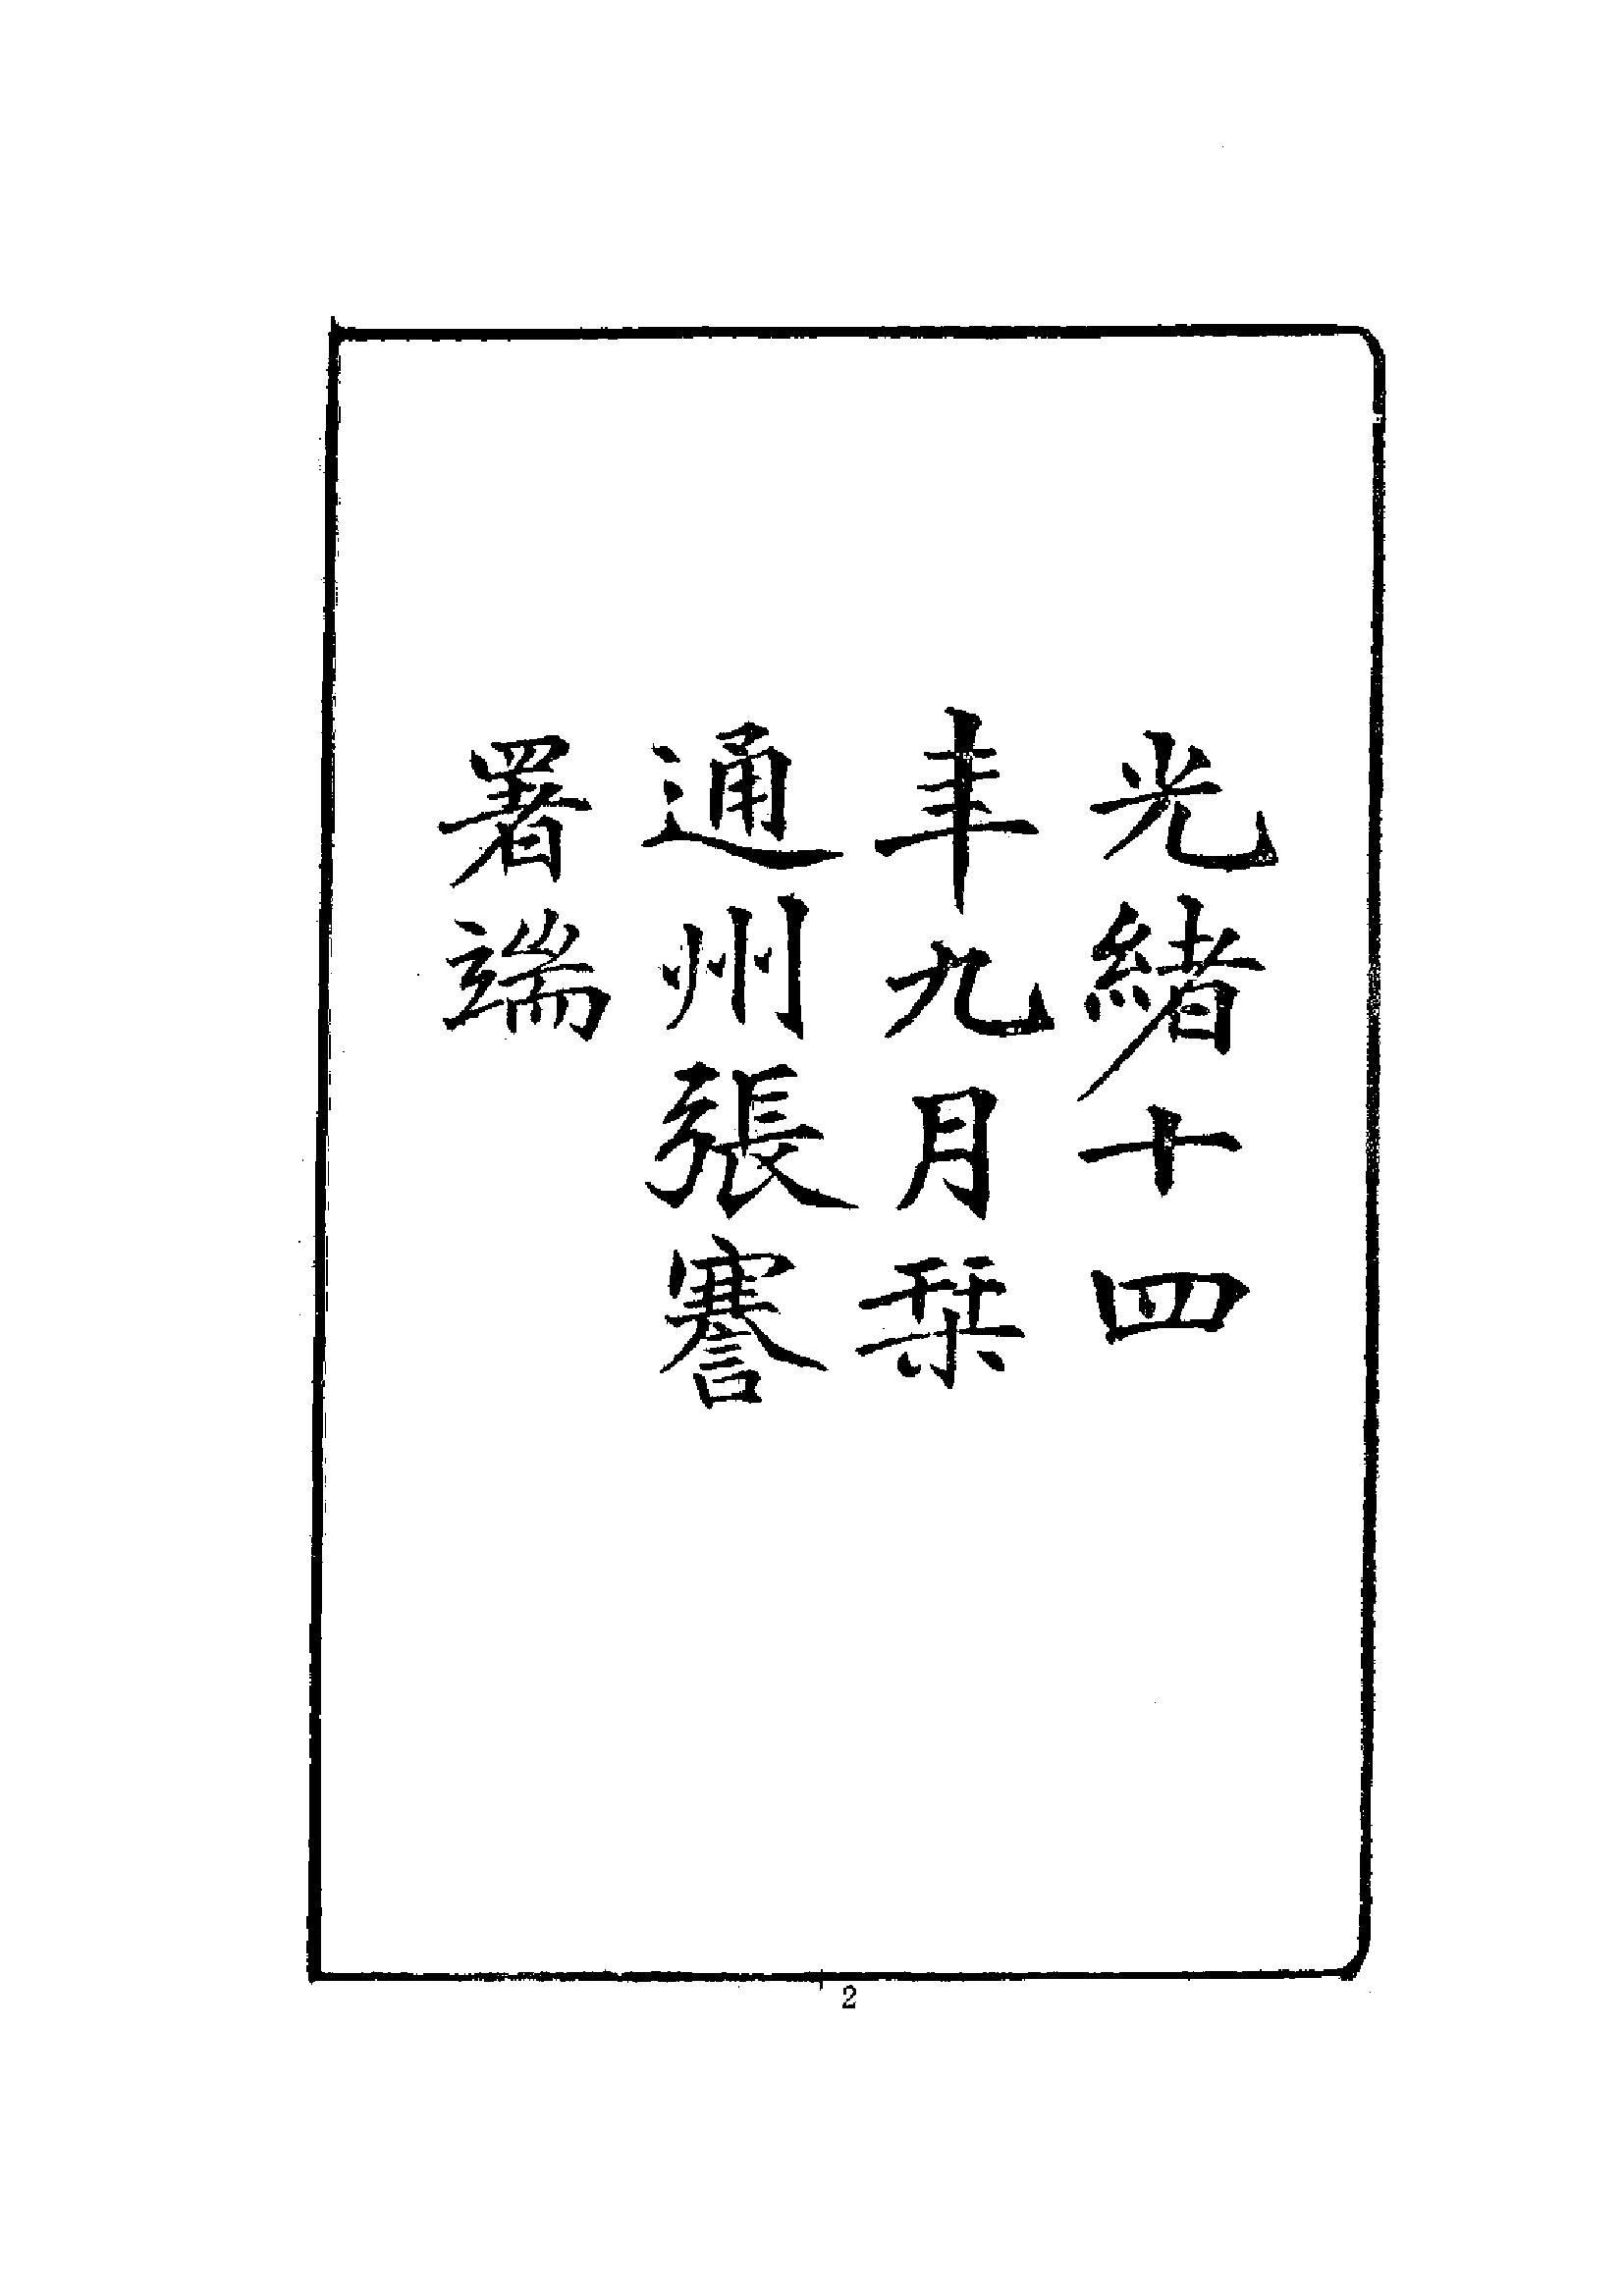 光緒十四
年九月栞
通州張謇
署端
2